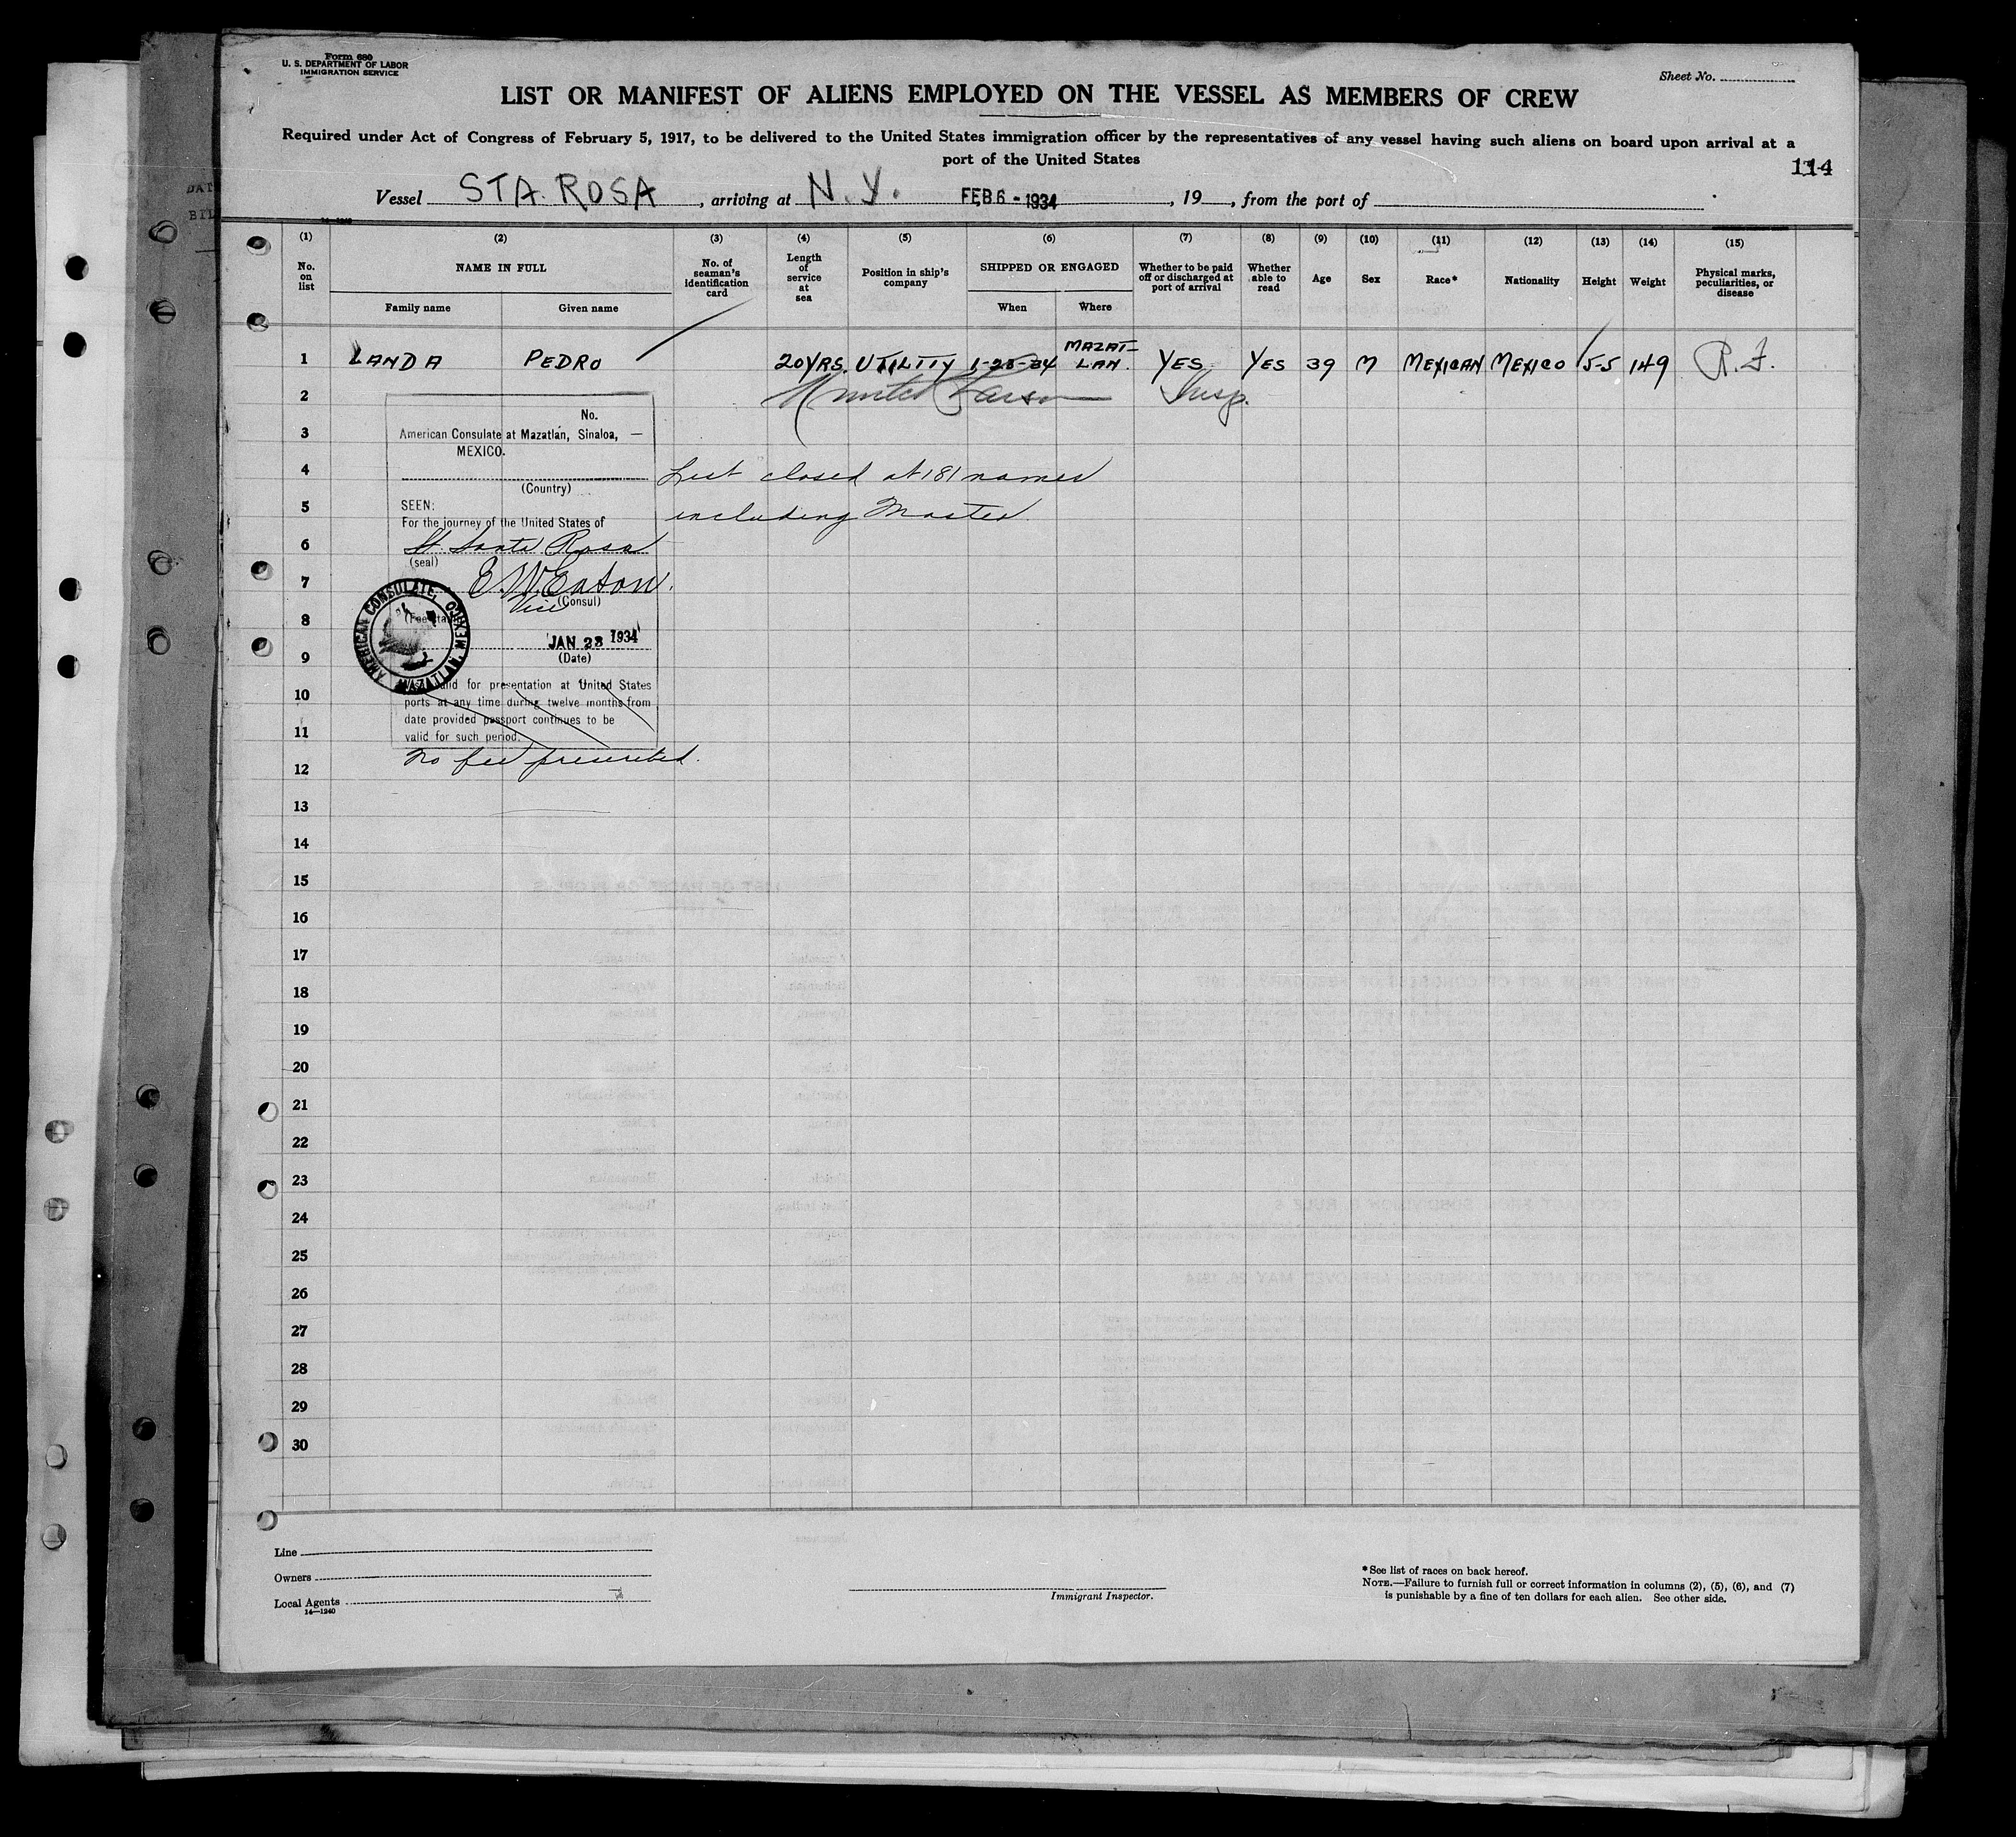 Form 680
U. S. DEPARTMENT OF LABOR
IMMIGRATION SERVICE
Sheet No.
LIST OR MANIFEST OF ALIENS EMPLOYED ON THE VESSEL AS MEMBERS OF CREW
Required under Act of Congress of February 5, 1917, to be delivered to the United States immigration officer by the representatives of any vessel having such aliens on board upon arrival at a
port of the United States
114
Vessel STA. ROSA, arriving at N.Y. FEB 6 - 1934, 19, from the port of
DAT
BIL
(1) (2) (3) (4) (5) (6) (7) (8) (9) (10) (11) (12) (13) (14) (15)
No. on list
NAME IN FULL
Family name
Given name
No. of seaman's identification card
Length of service at sea
Position in ship's company
SHIPPED OR ENGAGED
When
Where
Whether to be paid off or discharged at port of arrival
Whether able to read
Age
Sex
Race*
Nationality
Height
Weight
Physical marks, peculiarities, or disease
1 LANDA PEDRO 20 YRS. UTILITY 1-28-34 MAZAT-LAN. YES YES 39 M MEXICAN MEXICO 5-5 149 R.F.
2 Insp.
3
4 List closed at 181 names
5 including Master.
6
7
8
9
10
11
12
13
14
15
16
17
18
19
20
21
22
23
24
25
26
27
28
29
30
No.
American Consulate at Mazatlán, Sinaloa, —
MEXICO.
(Country)
SEEN:
For the journey of the United States of
Santa Rosa
(seal)
E. W. Eaton.
Vice (Consul)
AMERICAN CONSULATE, MAZATLAN, MEXICO
JAN 23 1934
(Date)
valid for presentation at United States
ports at any time during twelve months from
date provided passport continues to be
valid for such period.
No fee prescribed.
Line
Owners
Local Agents
14—1240
Immigrant Inspector.
*See list of races on back hereof.
NOTE.—Failure to furnish full or correct information in columns (2), (5), (6), and (7)
is punishable by a fine of ten dollars for each alien. See other side.